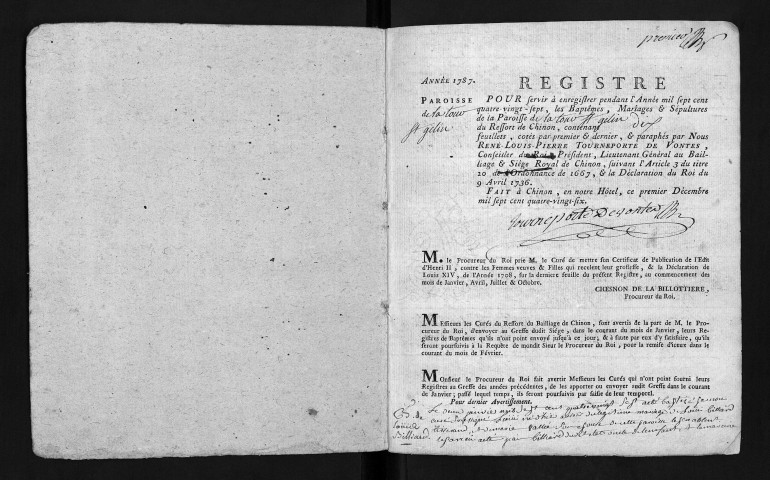 premier
ANNÉE 1787.
REGISTRE
PAROISSE
de la tour
St gelin
POUR servir à enregistrer pendant l'Année mil sept cent
quatre-vingt-sept, les Baptêmes, Mariages & Sépultures
de la Paroisse de la tour St gelin
du Ressort de Chinon, contenant dix
feuillets, cotés par premier & dernier, & paraphés par Nous
RENÉ-LOUIS-PIERRE TOURNEPORTE DE VONTES,
Conseiller du Roi, Président, Lieutenant Général au Bail-
liage & Siége Royal de Chinon, suivant l'Article 3 du titre
20 de l'Ordonnance de 1667, & la Déclaration du Roi du
9 Avril 1736.
FAIT à Chinon, en notre Hôtel, ce premier Décembre
mil sept cent quatre-vingt-six.
Tourneporte Devontes
M. le Procureur du Roi prie M. le Curé de mettre son Certificat de Publication de l'Edit
d'Henri II, contre les Femmes veuves & Filles qui recelent leur grossesse, & la Déclaration de
Louis XIV, de l'Année 1708, sur la derniere feuille du présent Registre, au commencement des
mois de Janvier, Avril, Juillet & Octobre.
CHESNON DE LA BILLOTTIERE,
Procureur du Roi.
Messieurs les Curés du Ressort du Bailliage de Chinon, sont avertis de la part de M. le Pro-
cureur du Roi, d'envoyer au Greffe dudit Siége, dans le courant du mois de Janvier, leurs Re-
gistres de Baptêmes qu'ils n'ont point envoyé jusqu'à ce jour; & à faute par eux d'y satisfaire, qu'ils
seront poursuivis à la Requête de mondit Sieur le Procureur du Roi, pour la remise d'iceux dans le
courant du mois de Février.
Monsieur le Procureur du Roi fait avertir Messieurs les Curés qui n'ont point fourni leurs
Registres au Greffe des années précédentes, de les apporter ou envoyer audit Greffe dans le courant
de Janvier; passé lequel temps, ils seront poursuivis par saisie de leur temporel.
Pour dernier Avertissement.
B. 1.
Louise
Billiard
Le janvier mil sept cent quatre vingt sept a été baptisé
mariage de Louis billiard
et de marie de cette paroisse le